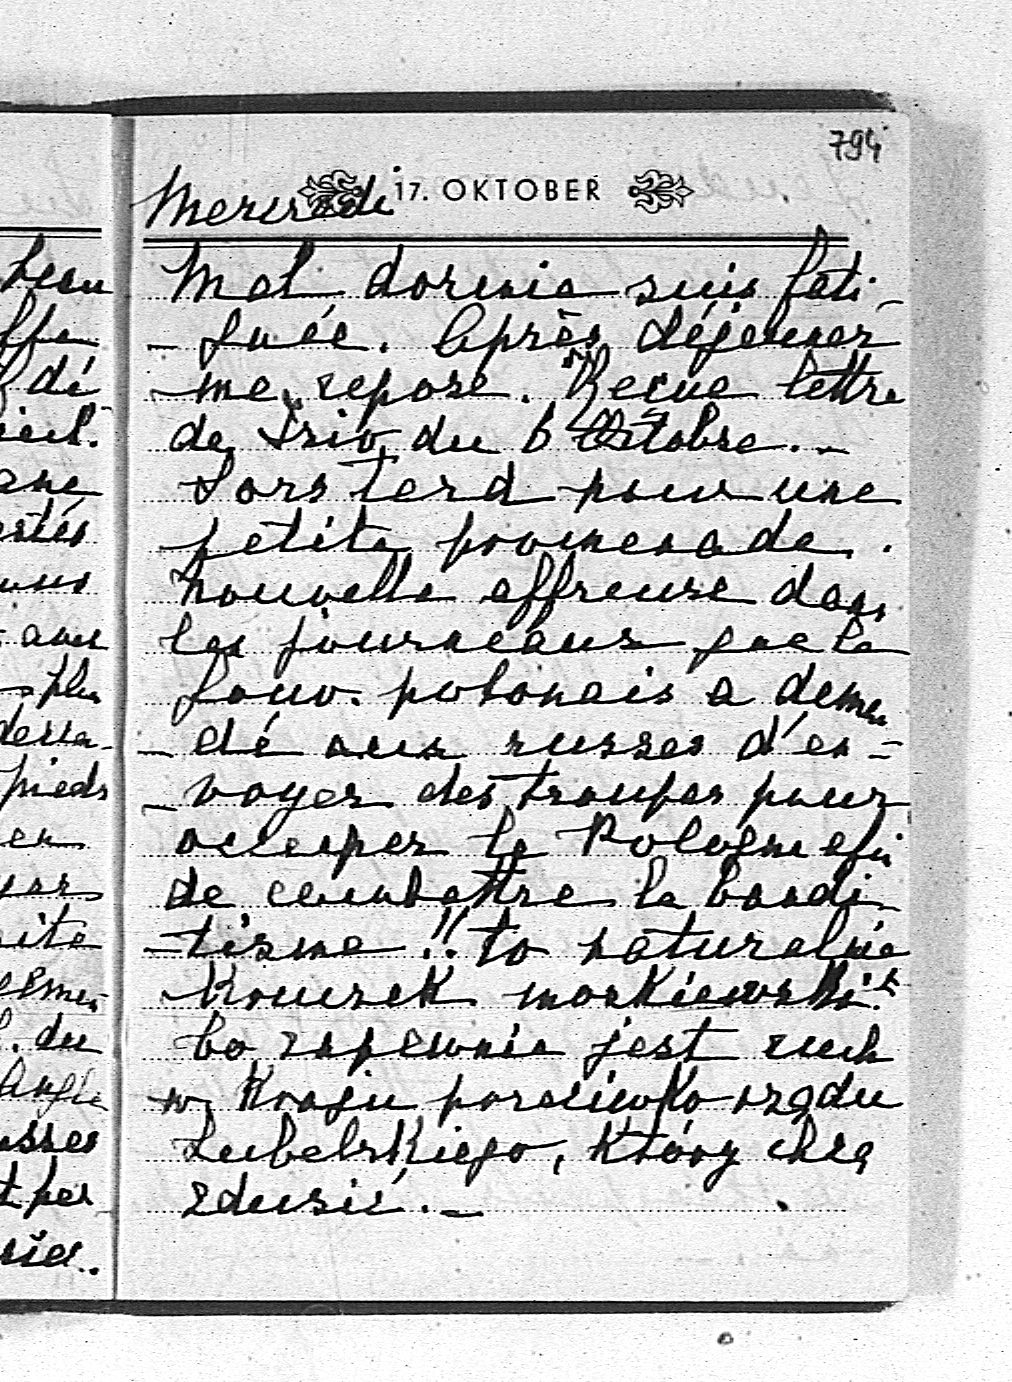 794
Mercredi 17. OKTOBER
Mal dormie suis fati-
guée. Après déjeuner
me repose. Reçue lettre
de du 6 Octobre. -
Sors tard pour une
petite promenade.
Nouvelle affreuse dans
les journeaux que le
gouv. polonais a deman
dé aux russes d'en=
voyer des troupes pour
occuper la Pologne afin
de combattre le bandi-
tisme !! to naturalnie
kawek moskiewski!
bo zapewnie jest ruch
w Kraju przeciwko rządu
Lubelskiego, który chcą
zdusić. -
beau
dé
ane
estés
avu
plu
pieds
en
du